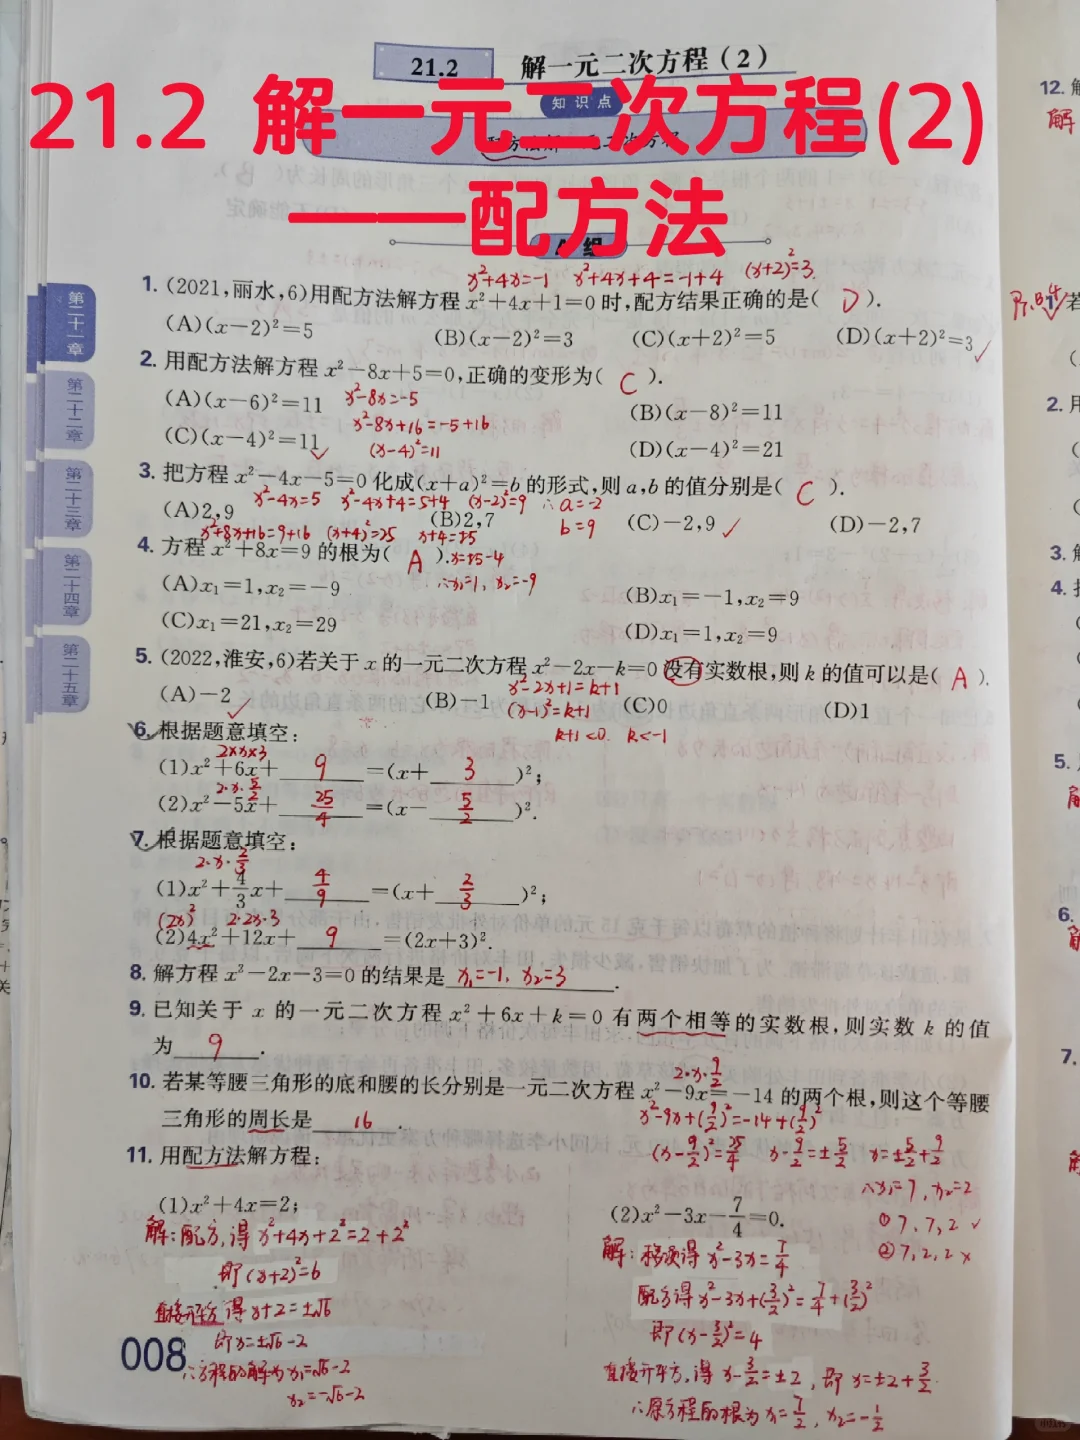 21.2 解一元二次方程(2)
21.2 解一元二次方程(2)
知识点
——配方法
x²+4x=-1 x²+4x+4=-1+4 (x+2)²=3.
1. (2021,丽水,6)用配方法解方程 x²+4x+1=0 时,配方结果正确的是( D ).
(A)(x-2)²=5 (B)(x-2)²=3 (C)(x+2)²=5 (D)(x+2)²=3 ✓
2. 用配方法解方程 x²-8x+5=0,正确的变形为( C ).
(A)(x-6)²=11 x²-8x=-5 (B)(x-8)²=11
x²-8x+16=-5+16
(C)(x-4)²=11 ✓ (x-4)²=11 (D)(x-4)²=21
3. 把方程 x²-4x-5=0 化成(x+a)²=b 的形式,则 a,b 的值分别是( C ).
x²-4x=5 x²-4x+4=5+4 (x-2)²=9 ∴a=-2
(A)2,9 (B)2,7 b=9 (C)-2,9 ✓ (D)-2,7
x²+8x+16=9+16 (x+4)²=25 x+4=±5
4. 方程 x²+8x=9 的根为( A ). x=±5-4
∴x₁=1, x₂=-9
(A)x₁=1,x₂=-9 (B)x₁=-1,x₂=9
(C)x₁=21,x₂=29 (D)x₁=1,x₂=9
5. (2022,淮安,6)若关于 x 的一元二次方程 x²-2x-k=0 没有实数根,则 k 的值可以是( A ).
x²-2x+1=k+1
(A)-2 ✓ (B)-1 (x-1)²=k+1 (C)0 (D)1
k+1<0. k<-1
6. 根据题意填空:
2×x×3
(1)x²+6x+ 9 =(x+ 3 )²;
2·x·5/2
(2)x²-5x+ 25/4 =(x- 5/2 )².
7. 根据题意填空:
2·x·2/3
(1)x²+4/3x+ 4/9 =(x+ 2/3 )²;
(2x)² 2·2x·3
(2)4x²+12x+ 9 =(2x+3)².
8. 解方程 x²-2x-3=0 的结果是 x₁=-1, x₂=3 .
9. 已知关于 x 的一元二次方程 x²+6x+k=0 有两个相等的实数根,则实数 k 的值
为 9 .
2·x·9/2
10. 若某等腰三角形的底和腰的长分别是一元二次方程 x²-9x=-14 的两个根,则这个等腰
三角形的周长是 16 .
x²-9x+(9/2)²=-14+(9/2)²
(x-9/2)²=25/4 x-9/2=±5/2 x=±5/2+9/2
∴x₁=7, x₂=2
① 7, 7, 2 ✓
② 7, 2, 2 ×
11. 用配方法解方程:
(1)x²+4x=2;
解:配方,得 x²+4x+2²=2+2²
即(x+2)²=6
直接开方得 x+2=±√6
即x=±√6-2
∴方程的解为x₁=√6-2
x₂=-√6-2
(2)x²-3x-7/4=0.
解:移项得 x²-3x=7/4
配方得 x²-3x+(3/2)²=7/4+(3/2)²
即(x-3/2)²=4
直接开平方,得 x-3/2=±2, 即x=±2+3/2.
∴原方程的根为 x₁=7/2, x₂=-1/2
008
第二十一章
第二十二章
第二十三章
第二十四章
第二十五章
12. 解
解
2. 用
3. 解
5.
6.
7.